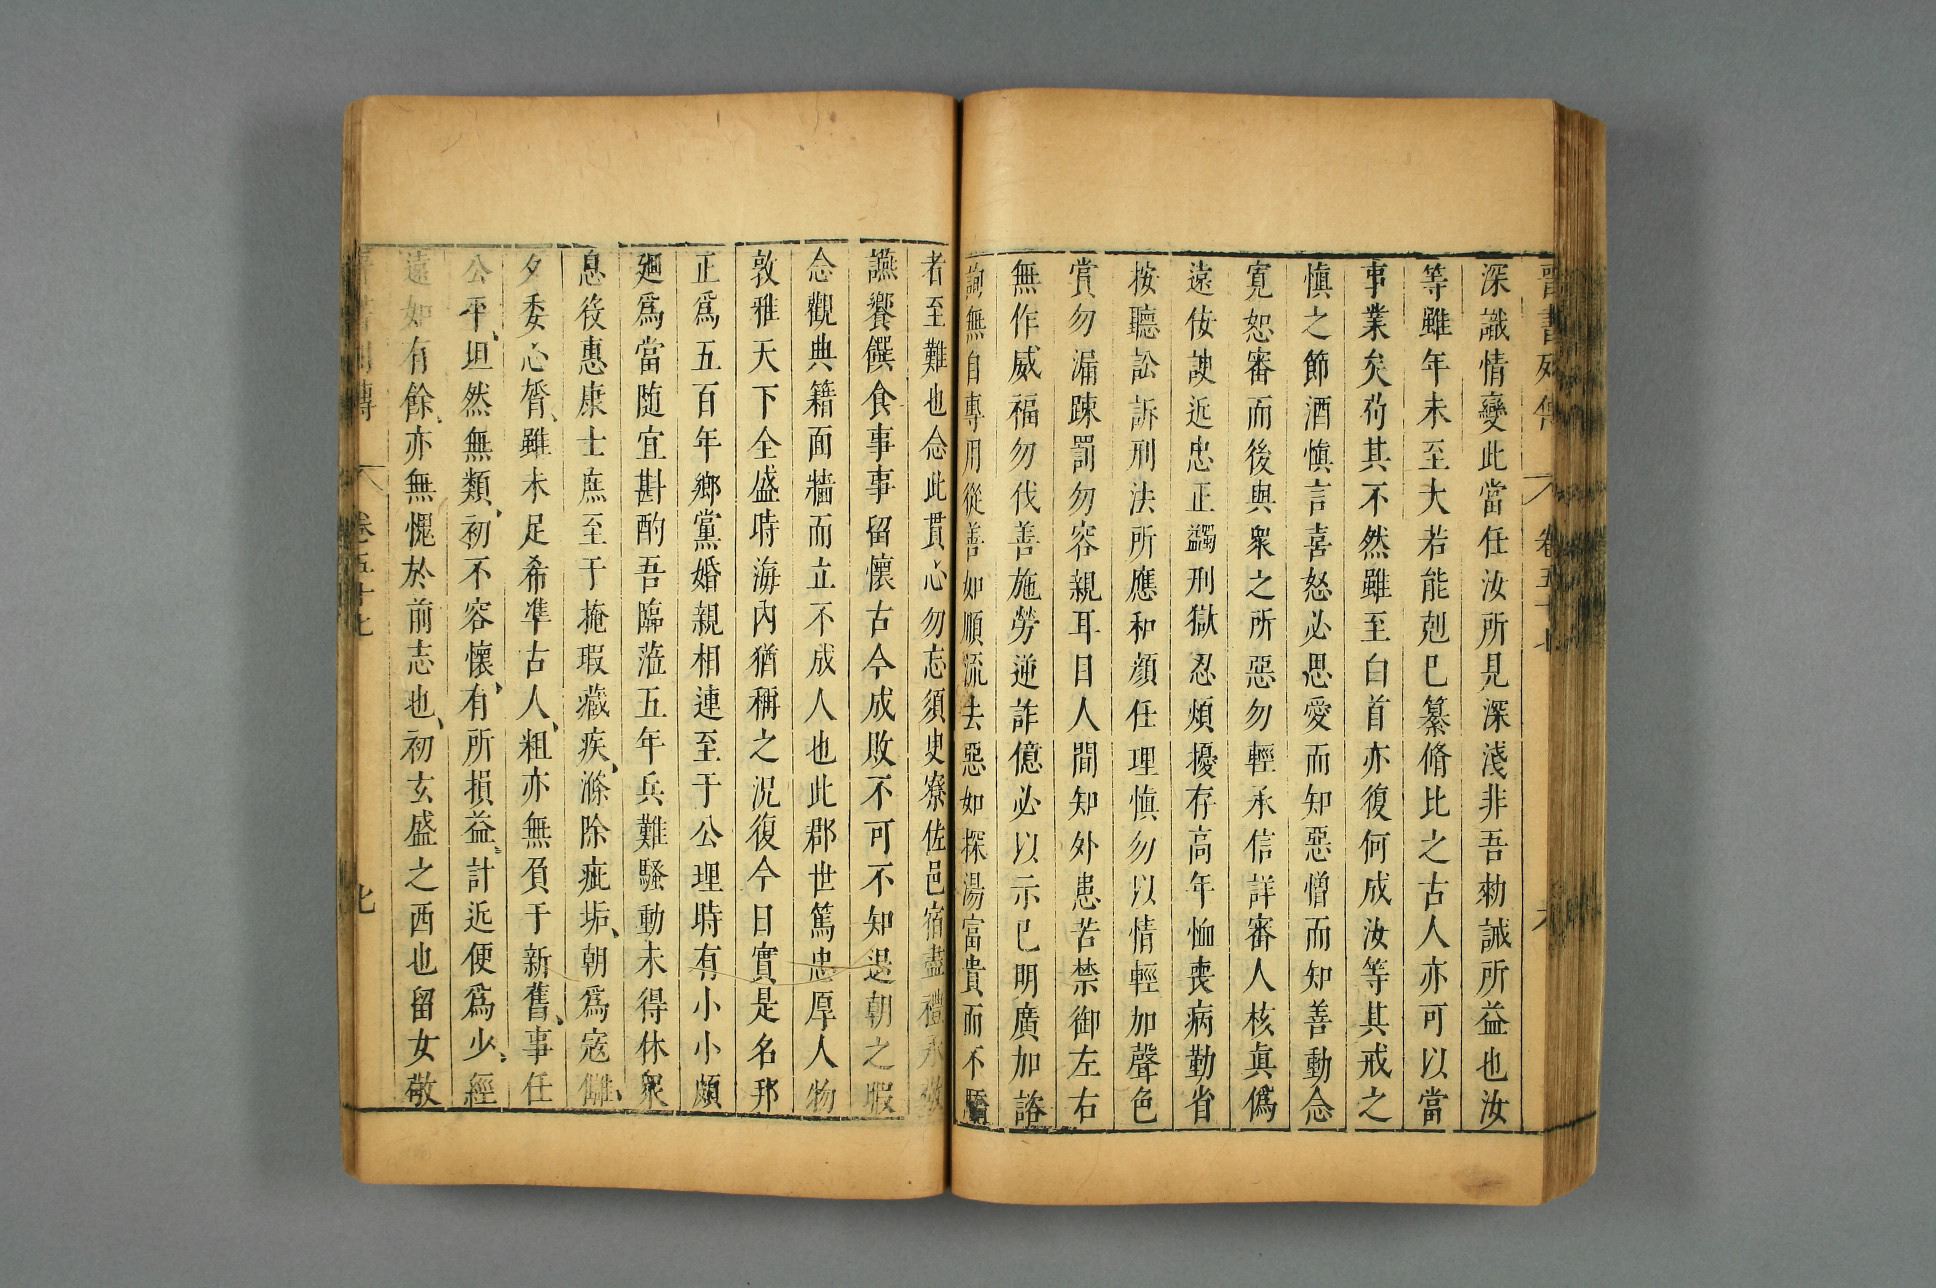 晉書列傳 卷五十七 六
深識情變此當任汝所見深淺非吾勑誡所益也汝
等雖年未至大若能剋已纂脩比之古人亦可以當
事業矣苟其不然雖至白首亦復何成汝等其戒之
愼之節酒愼言喜怒必思愛而知惡憎而知善動念
寬恕審而後與衆之所惡勿輕承信詳審人核眞僞
遠佞諛近忠正蠲刑獄忍煩擾存高年恤喪病勤省
按聽訟訴刑法所應和顏任理愼勿以情輕加聲色
賞勿漏踈罰勿容親耳目人間知外患苦禁御左右
無作威福勿伐善施勞逆詐億必以示已明廣加諮
詢無自專用從善如順流去惡如探湯富貴而不驕
者至難也念此貫心勿忘須臾寮佐邑宿盡禮承敬
讌饗饌食事事留懷古今成敗不可不知退朝之暇
念觀典籍面牆而立不成人也此郡世篤忠厚人物
敦雅天下全盛時海內猶稱之況復今日實是名邦
正爲五百年鄉黨婚親相連至于公理時有小小頗
廻爲當随宜斟酌吾臨蒞五年兵難騷動未得休衆
息役惠康士庶至于掩瑕藏疾、滌除疵垢、朝爲寇讎、
夕委心膂、雖未足希準古人、粗亦無負于新舊、事任
公平、坦然無類、初不容懷、有所損益、計近便爲少、經
遠如有餘、亦無愧於前志也、初玄盛之西也留女敬
晉書列傳 卷五十七 七